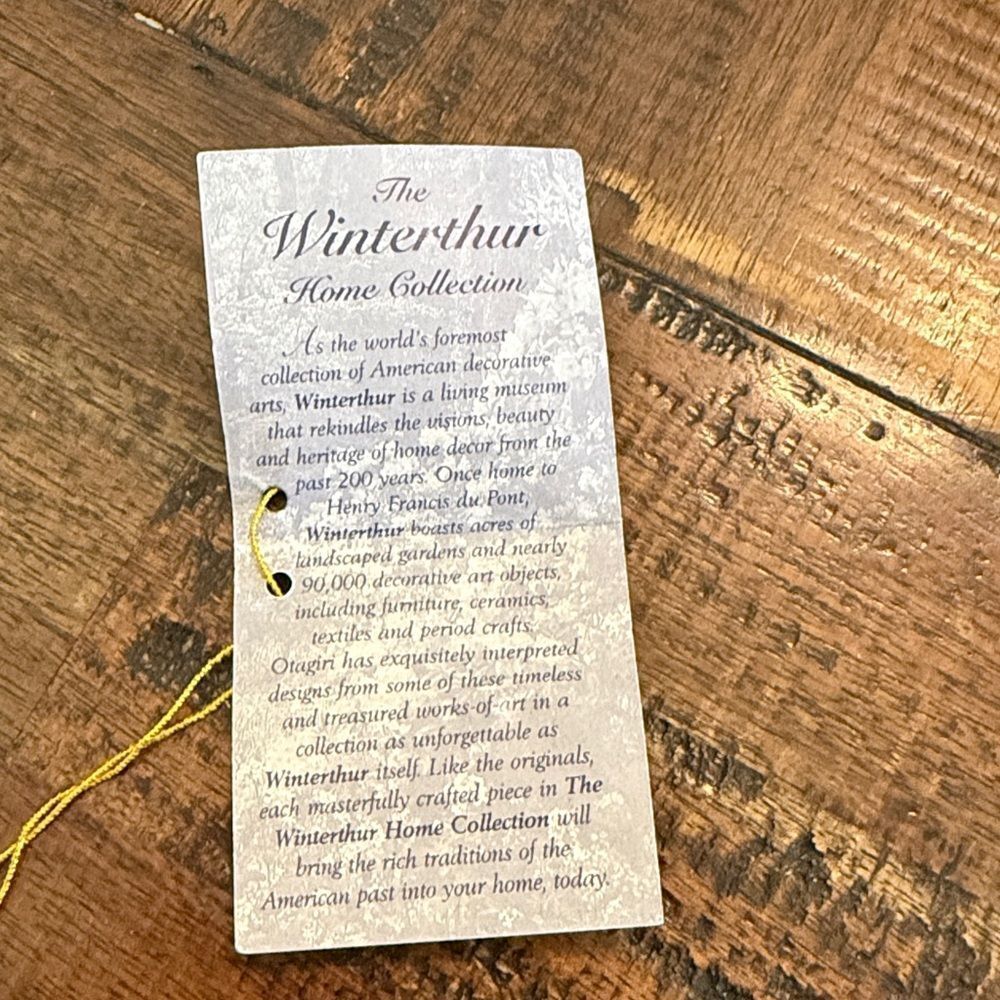 The
Winterthur
Home Collection
As the world's foremost
collection of American decorative
arts, Winterthur is a living museum
that rekindles the visions, beauty
and heritage of home decor from the
past 200 years. Once home to
Henry Francis du Pont,
Winterthur boasts acres of
landscaped gardens and nearly
90,000 decorative art objects,
including furniture, ceramics,
textiles and period crafts.
Otagiri has exquisitely interpreted
designs from some of these timeless
and treasured works-of-art in a
collection as unforgettable as
Winterthur itself. Like the originals,
each masterfully crafted piece in The
Winterthur Home Collection will
bring the rich traditions of the
American past into your home, today.